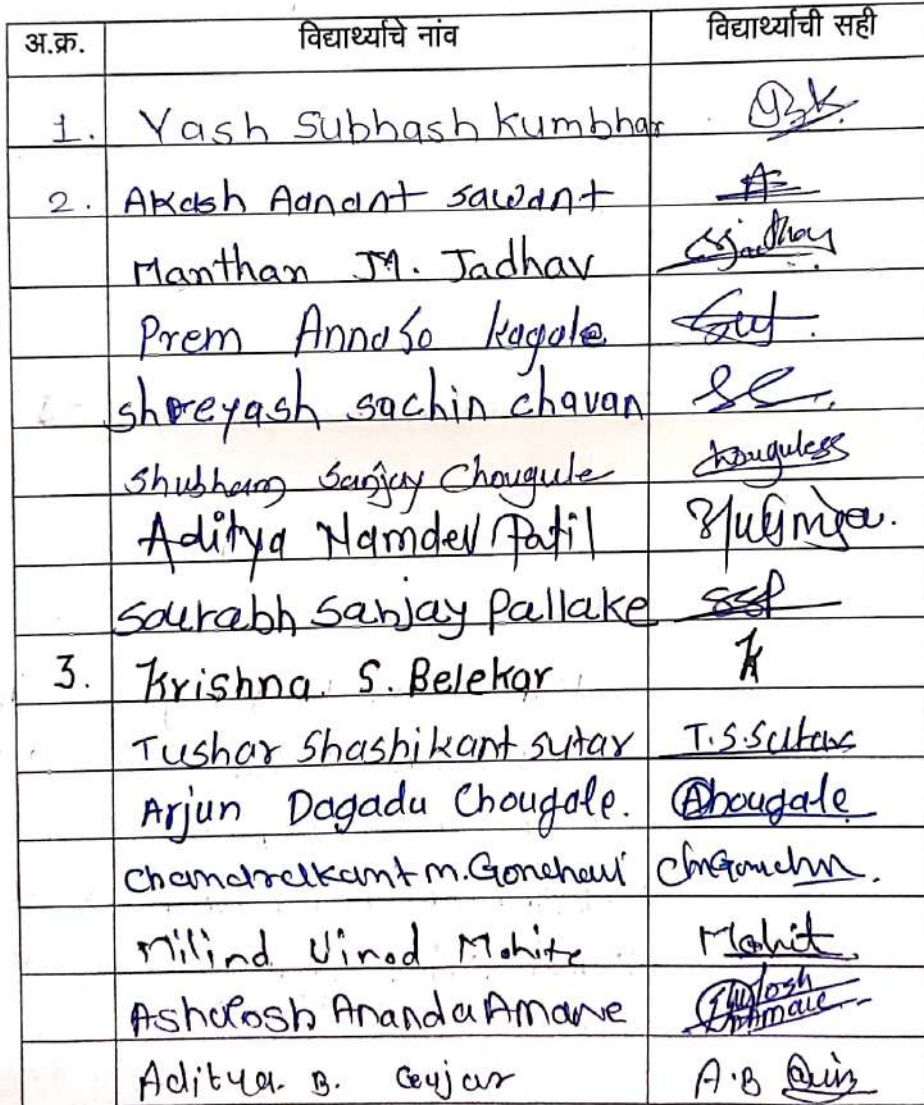 अ.क्र. विद्यार्थ्याचे नांव विद्यार्थ्याची सही
1. Yash Subhash Kumbhar
2. Akash Aanant Sawant A
Manthan M. Jadhav
Prem Annaso Kagale
shreyash sachin chavan SC
Shubham Sanjay Chougule Chouguless
Aditya Namdev Patil
Sourabh Sanjay Pallake SSP
3. Krishna. S. Belekar K
Tushar Shashikant Sutar T.S.Sutar
Arjun Dagadu Chougale. AChougale
Chandrakant m. Gonchi
Milind Vinod Mohite Mohit
Ashutosh Ananda Amane
Aditya. B. Gujar A.B